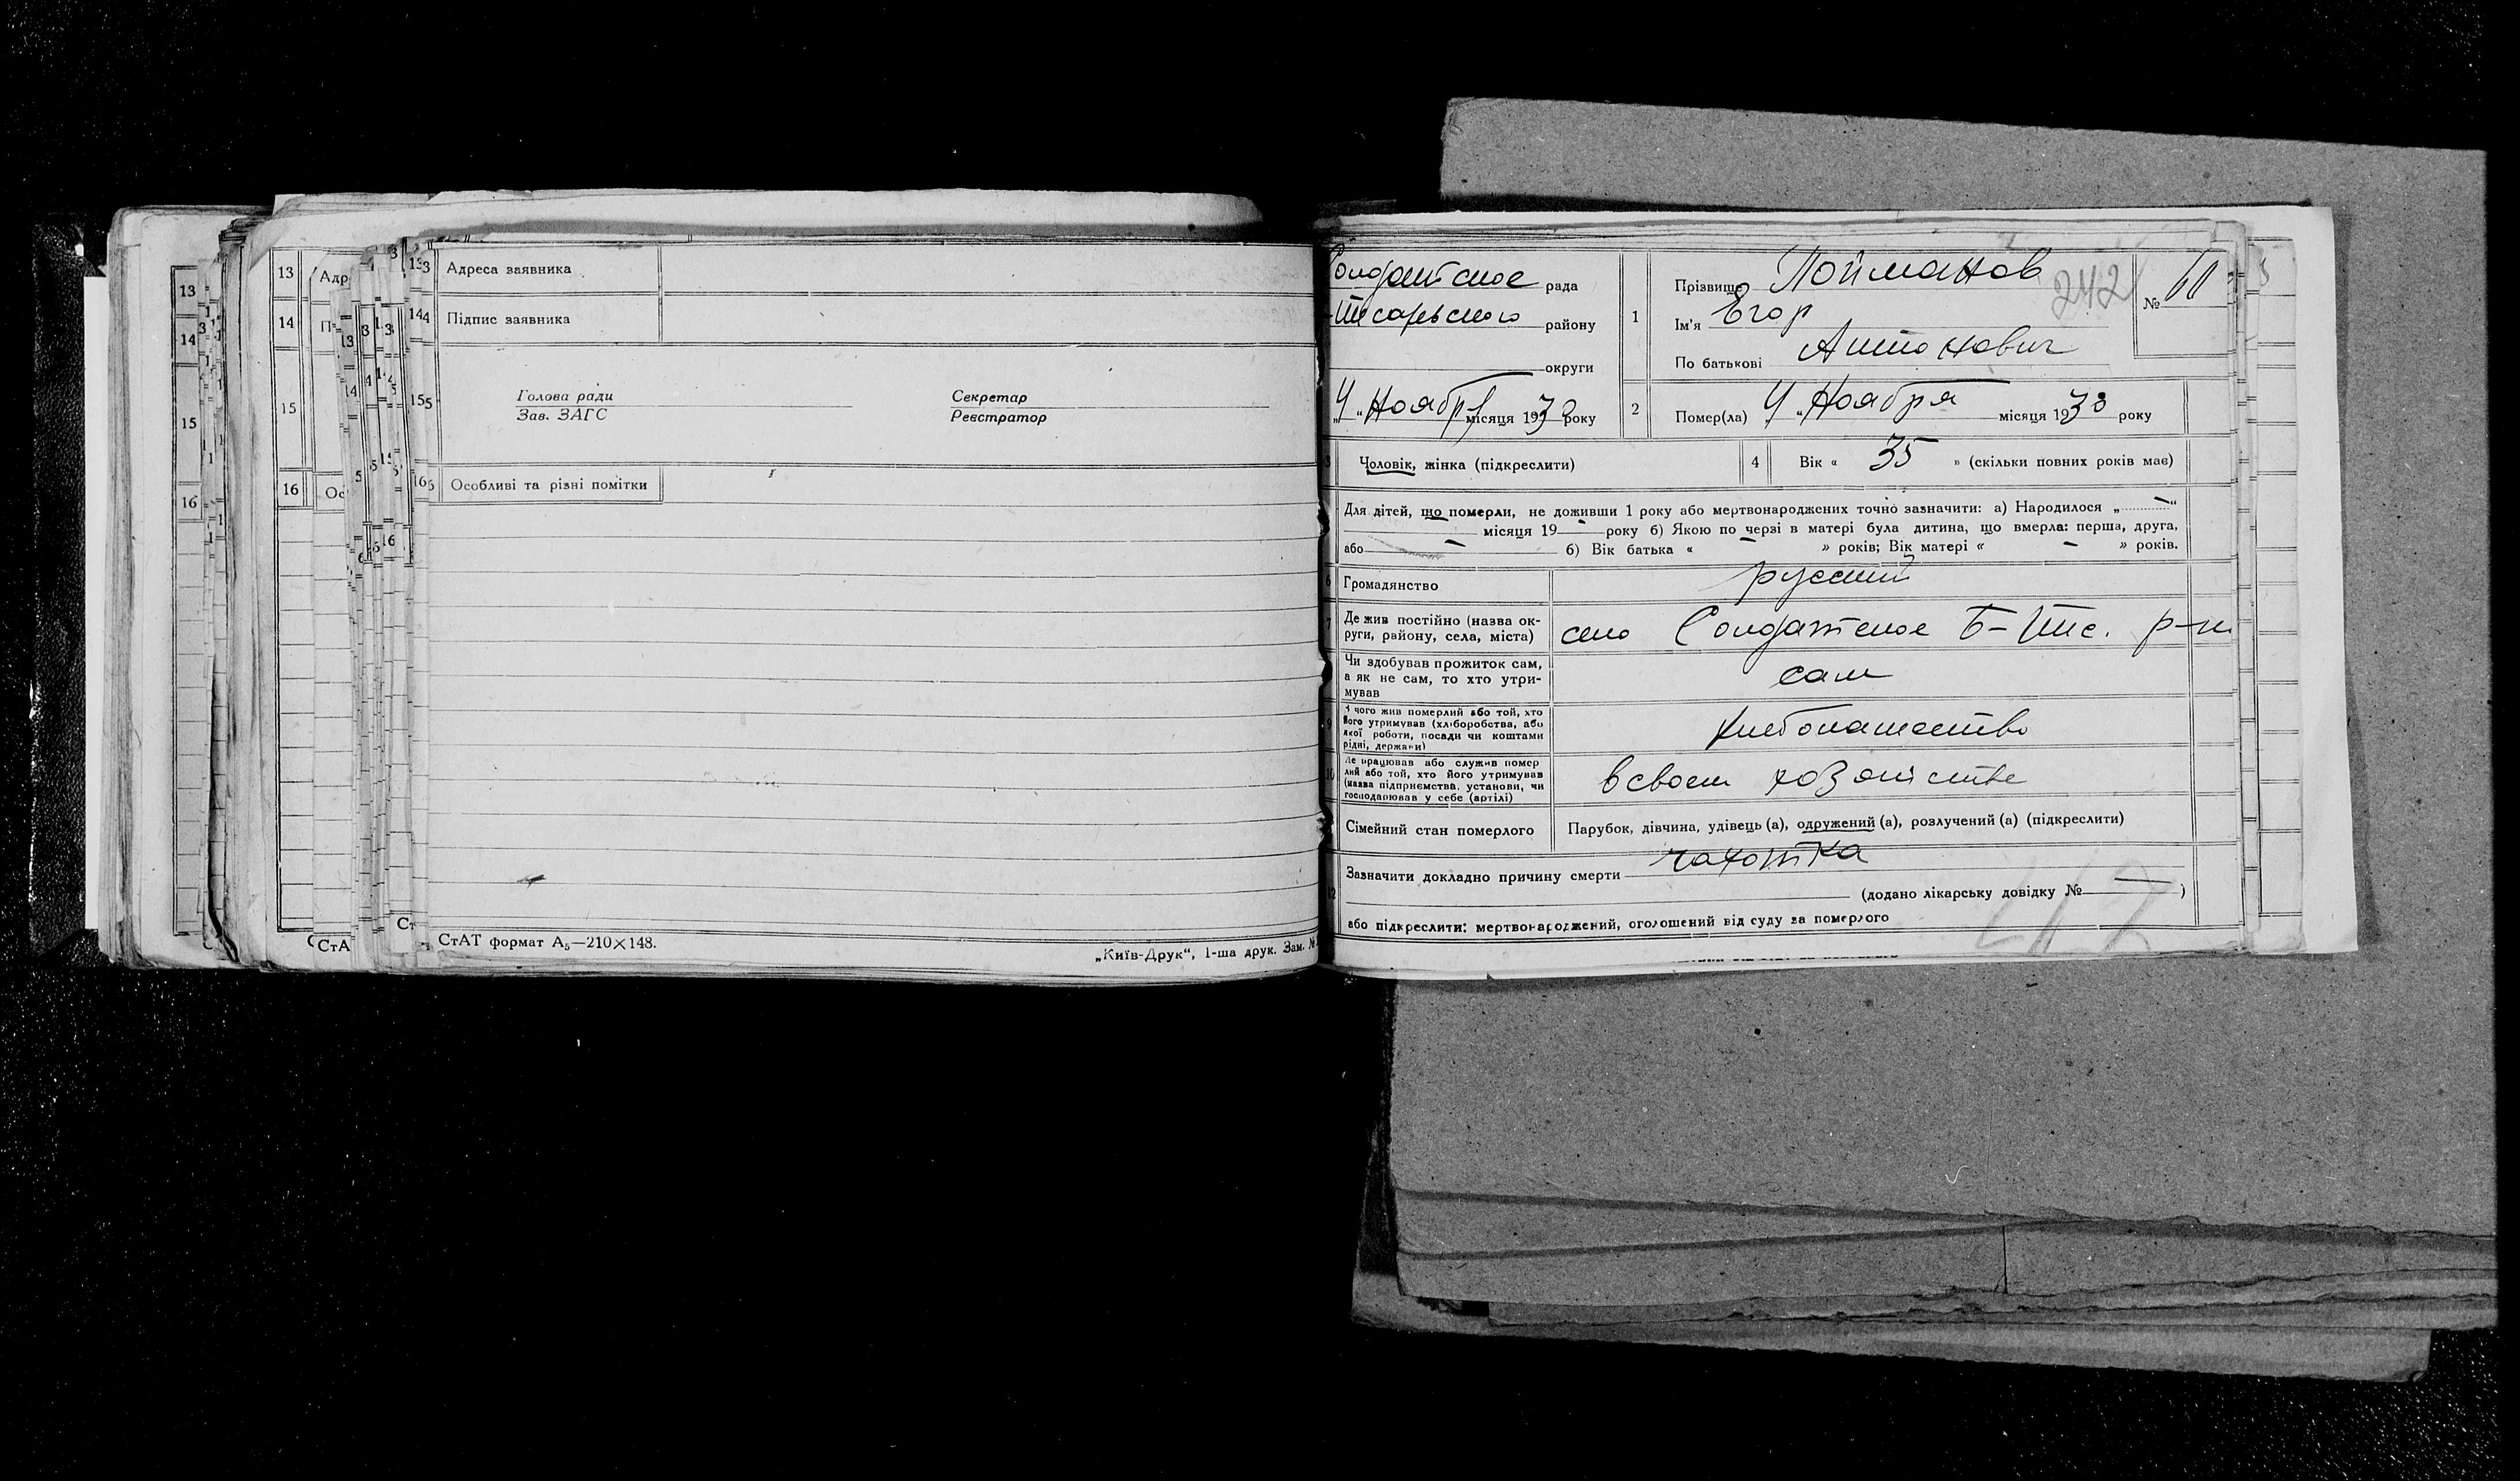 13 Адреса заявника
14 Підпис заявника
15 Голова ради Секретар
Зав. ЗАГС Реєстратор
16 Особливі та різні помітки
СтАТ формат А5—210×148.
„Київ-Друк“, 1-ша друк. Зам. №
Солдатское рада
району
округи
4 „ Ноября місяця 1930 року
1 Прізвище Пойманов
Ім'я Егор
По батькові Антонович
242
№
2 Помер(ла) 4 „ Ноября місяця 1930 року
Чоловік, жінка (підкреслити)
4 Вік « 35 » (скільки повних років має)
Для дітей, що померли, не доживши 1 року або мертвонароджених точно зазначити: а) Народилося „ — “
місяця 19 — року б) Якою по черзі в матері була дитина, що вмерла: перша, друга,
або — б) Вік батька « — » років; Вік матері « — » років.
6 Громадянство русский
7 Де жив постійно (назва ок-
руги, району, села, міста) село Солдатское Б-Пис. р-н
Чи здобував прожиток сам,
а як не сам, то хто утри-
мував сам
9 З чого жив померлий або той, хто
його утримував (хліборобства, або
якої роботи, посади чи коштами
рідні, держави) хлебопашество
10 Де працював або служив помер
лий або той, хто його утримував
(назва підприємства, установи, чи
господарював у себе (артілі) в своем хозяйстве
Сімейний стан померлого Парубок, дівчина, удівець (а), одружений (а), розлучений (а) (підкреслити)
12 Зазначити докладно причину смерти чахотка
(додано лікарську довідку № — )
або підкреслити: мертвонароджений, оголошений від суду за померлого